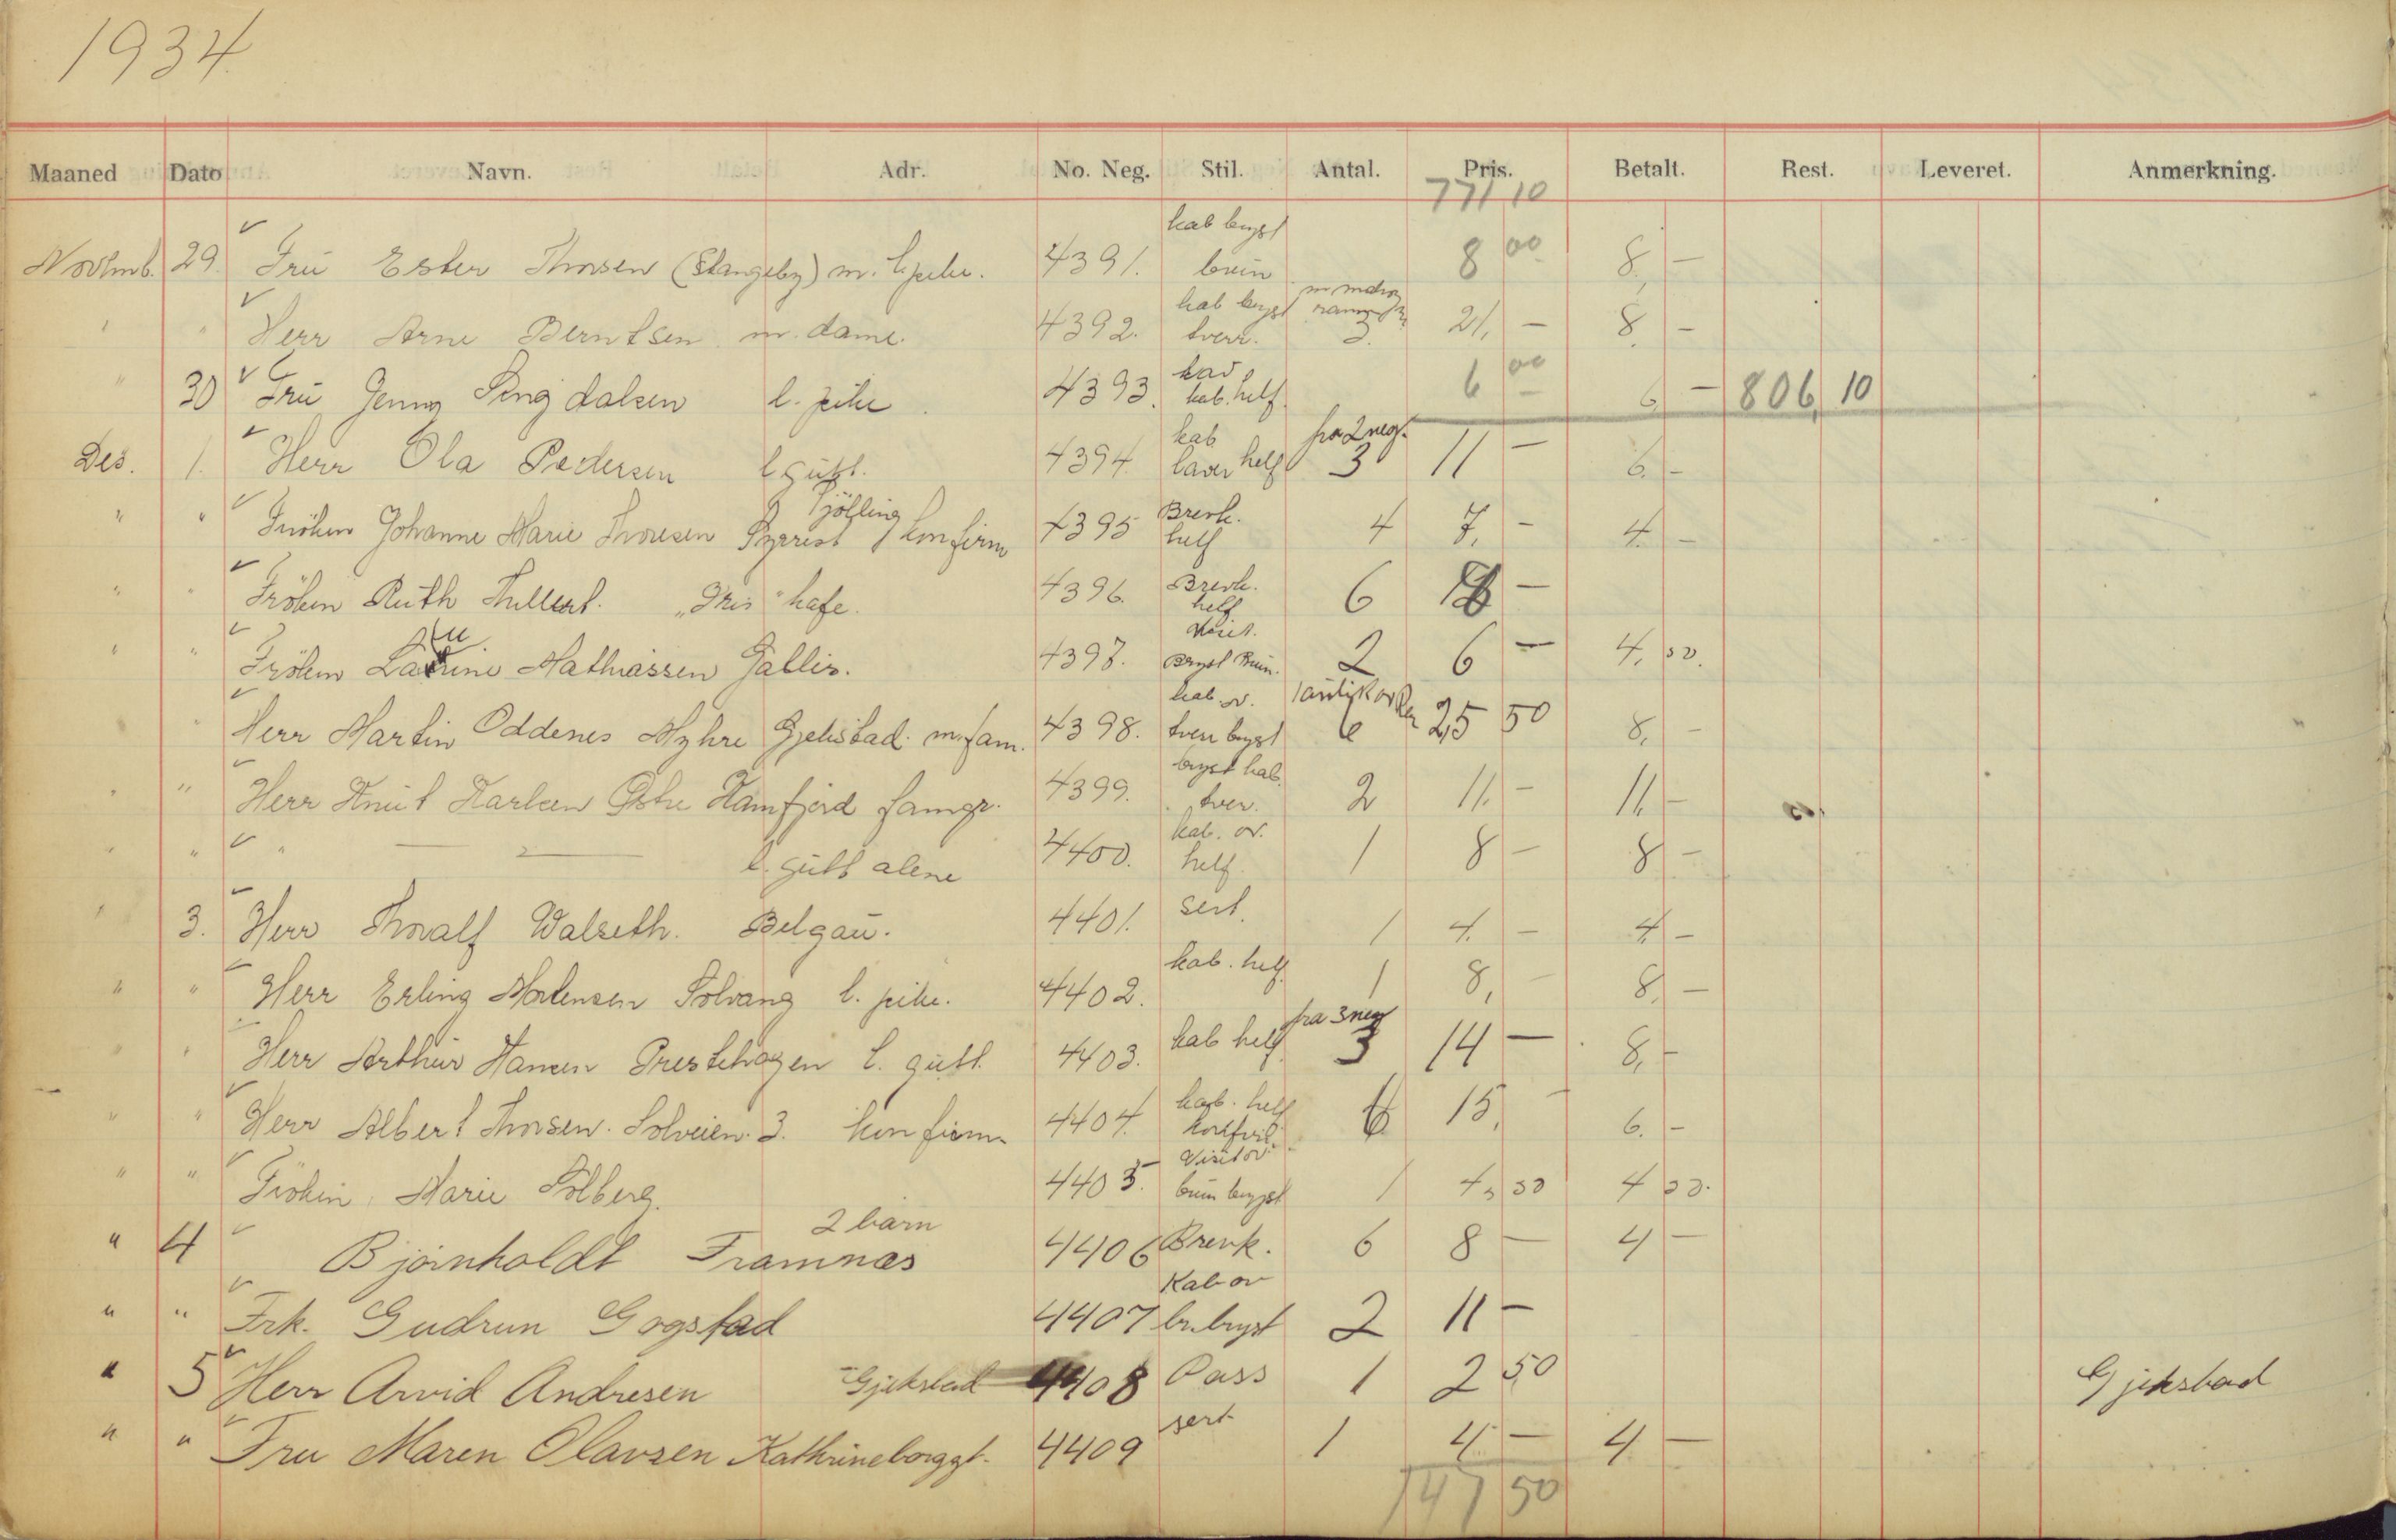 1934.
Maaned Dato Navn. Adr. No. Neg. Stil. Antal. Pris. Betalt. Rest. Leveret. Anmerkning.
771 10
kab bryst
Novbmb. 29. Frü Ester Thorsen (Slangeby) m. l. pike. 4391. brün 8 00 8, -
kab bryst
" " Herr Arne Berntsen m. dame. 4392. tverr. 3. 21, - 8. -
" 30 Frü Jenny Ringdalsen l. pike 4393. kab. helf. 6 00 6, - 806, 10
kab fra 2 neg.
Des. 1. Herr Ola Pedersen l gütt. 4394. laver helf 3 11 - 6. -
Tjölling Brevk.
" " Fröken Johanne Marie Thoresen konfirm 4395 helf 4 7. - 4. -
" " Fröken Rüth "Iris" kafe. 4396. Brevk. helf 6 -
Visit.
" " Fröken Mathiassen Gallis. 4397. Bryst Brün. 2 6 - 4, 50.
kab ov.
" Herr Martin Oddenes Myhre Gjekstad m. fam. 4398. tverr bryst 6 25 50 8, -
bryst kab.
" " Herr Knüt Karlsen Östre Hamfjord famgr. 4399. tver. 2 11. - 11, -
kab. ov.
" " " l. gütt alene 4400. helf. 1 8 - 8 -
" 3. Herr Thoralf Walseth. Belgaü. 4401. sert. 1 4. - 4, -
kab. helf.
" " Herr Erling Mortensen Solvang l. pike. 4402. 1 8, - 8, -
fra 3 neg
" " Herr Arthür Hansen Prestehagen l. gütt. 4403. kab helf 3 14 - 8, -
" " Herr Albert Thorsen. Solveien. 3. konfirm. 4404. kab. helf 6 15, - 6. -
Visit ov.
" " Fröken Marie Solberg. 4405. brün bryst 1 4, 50 4 50.
2 barn
" 4 " Bjørnholdt Framnæs 4406 Brevk. 6 8 - 4 -
Kab ov
" " Frk. Gudrun Gogstad 4407 br. bryst 2 11 -
" 5 Herr Arvid Andresen Gjekstad 4408 Pass 1 2 50 Gjekstad
sert
" " Fru Maren Olavsen Kathrineborggt. 4409 1 4 - 4 -
147 50